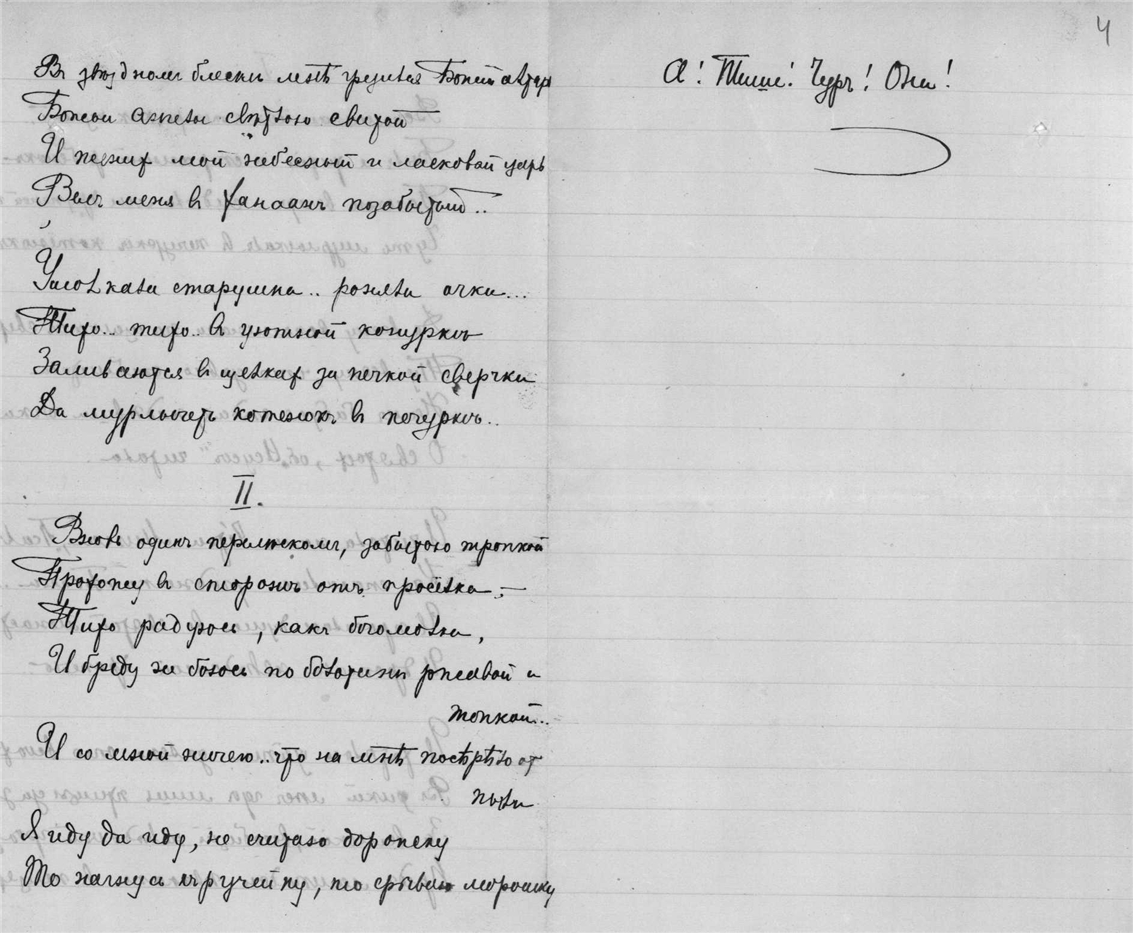 В звѣздномъ блескѣ мнѣ грезится Божий алтарь
Божьи ангелы свѣтлою свитой
И жених мой небесный и ласковай царь
Весь меня в Ханаанъ позабытый..
Умолкла старушка.. роняя очки...
Тихо.. тихо.. в уютной конуркѣ
Заливаются в щелках за печкой сверчки
Да мурлычетъ котенокъ в печуркѣ..
II.
Вновь один перелѣском, забытою тропкой
Прохожу в сторонѣ отъ просёлка, —
Тихо радуюсь, какъ богомолка,
И бреду не боюсь по болотинѣ ржавой и
топкой..
И со мной ничего.. что на мнѣ посѣрѣло от
пыли
Я иду да иду, не считаю дорожку
То нагнусь къ ручейку, то срываю морошку
4
А! Тише! Чуръ! Они!